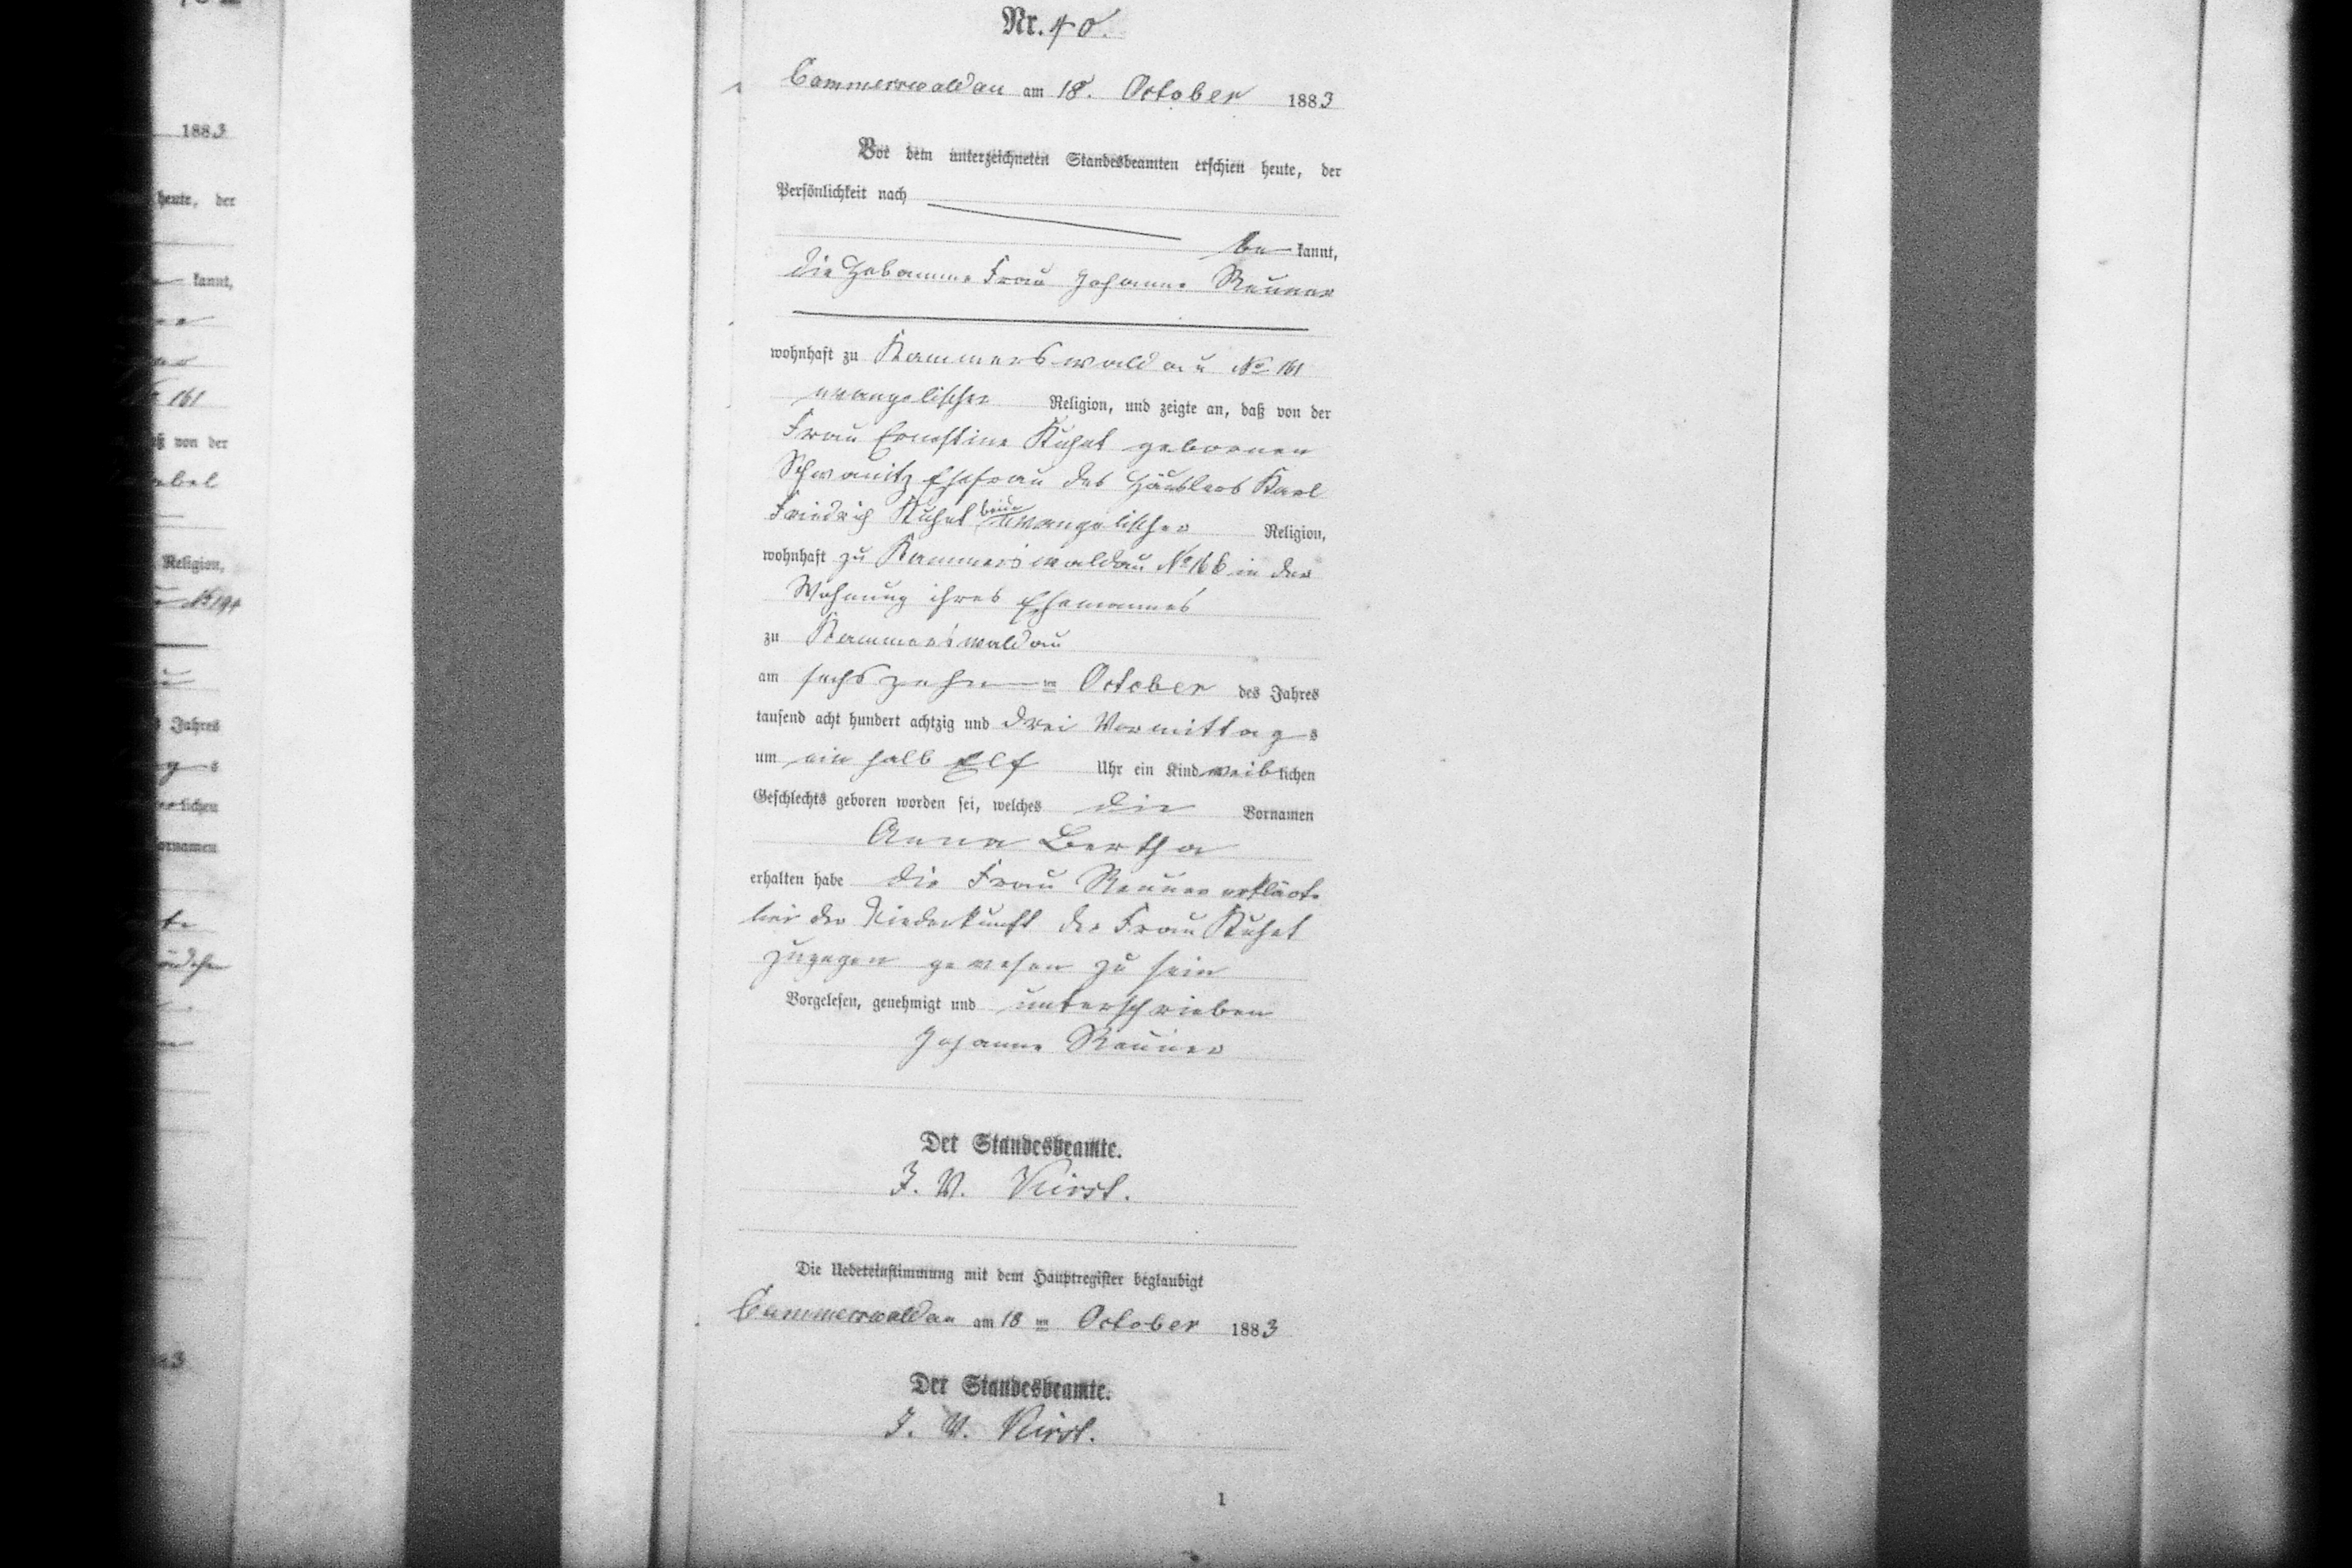 1883
heute, der
kannt,
161
von der
Religion,
No 194
Jahres
lichen
Vornamen
Nr. 40.
Cammerswaldau am 18. October 1883
Vor dem unterzeichneten Standesbeamten erschien heute, der
Persönlichkeit nach
be kannt,
die Hebamme Frau Johanne Renner
wohnhaft zu Kammerswaldau No 161
evangelischer Religion, und zeigte an, daß von der
Frau Ernestine Kuhnt geborenen
Schwanitz Ehefrau des Häuslers Karl
Friedrich Kuhnt beide evangelischer Religion,
wohnhaft zu Kammerswaldau No 166 in der
Wohnung ihres Ehemannes
zu Kammerswaldau
am sechszehn ten October des Jahres
tausend acht hundert achtzig und drei Vormittag s
um ein halb Elf Uhr ein Kind weib lichen
Geschlechts geboren worden sei, welches die Vornamen
Anna Bertha
erhalten habe die Frau Renner erklärte
bei der Niederkunft der Frau Kuhnt
zugegen gewesen zu sein
Vorgelesen, genehmigt und unterschrieben
Johanne Renner
Der Standesbeamte.
J. V. Kirst.
Die Uebereinstimmung mit dem Hauptregister beglaubigt
Cammerswaldau am 18 ten October 1883
Der Standesbeamte.
J. V. Kirst.
1